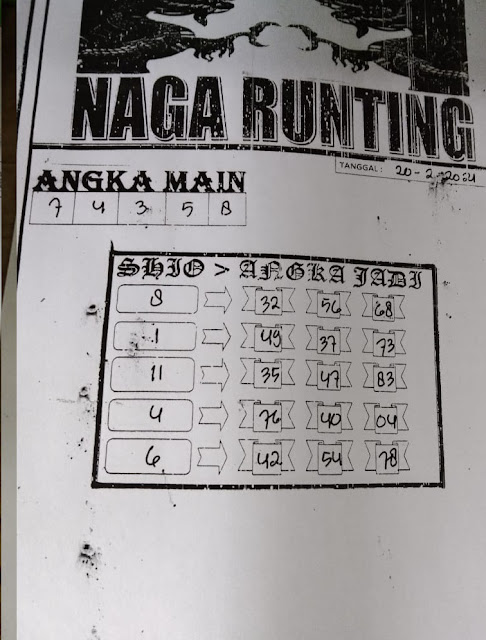 NAGA RUNTING
TANGGAL : 20-2-2024
ANGKA MAIN
7 4 3 5 8
SHIO > ANGKA JADI
8 32 56 68
1 49 37 73
11 35 47 83
4 76 40 04
6 42 54 78